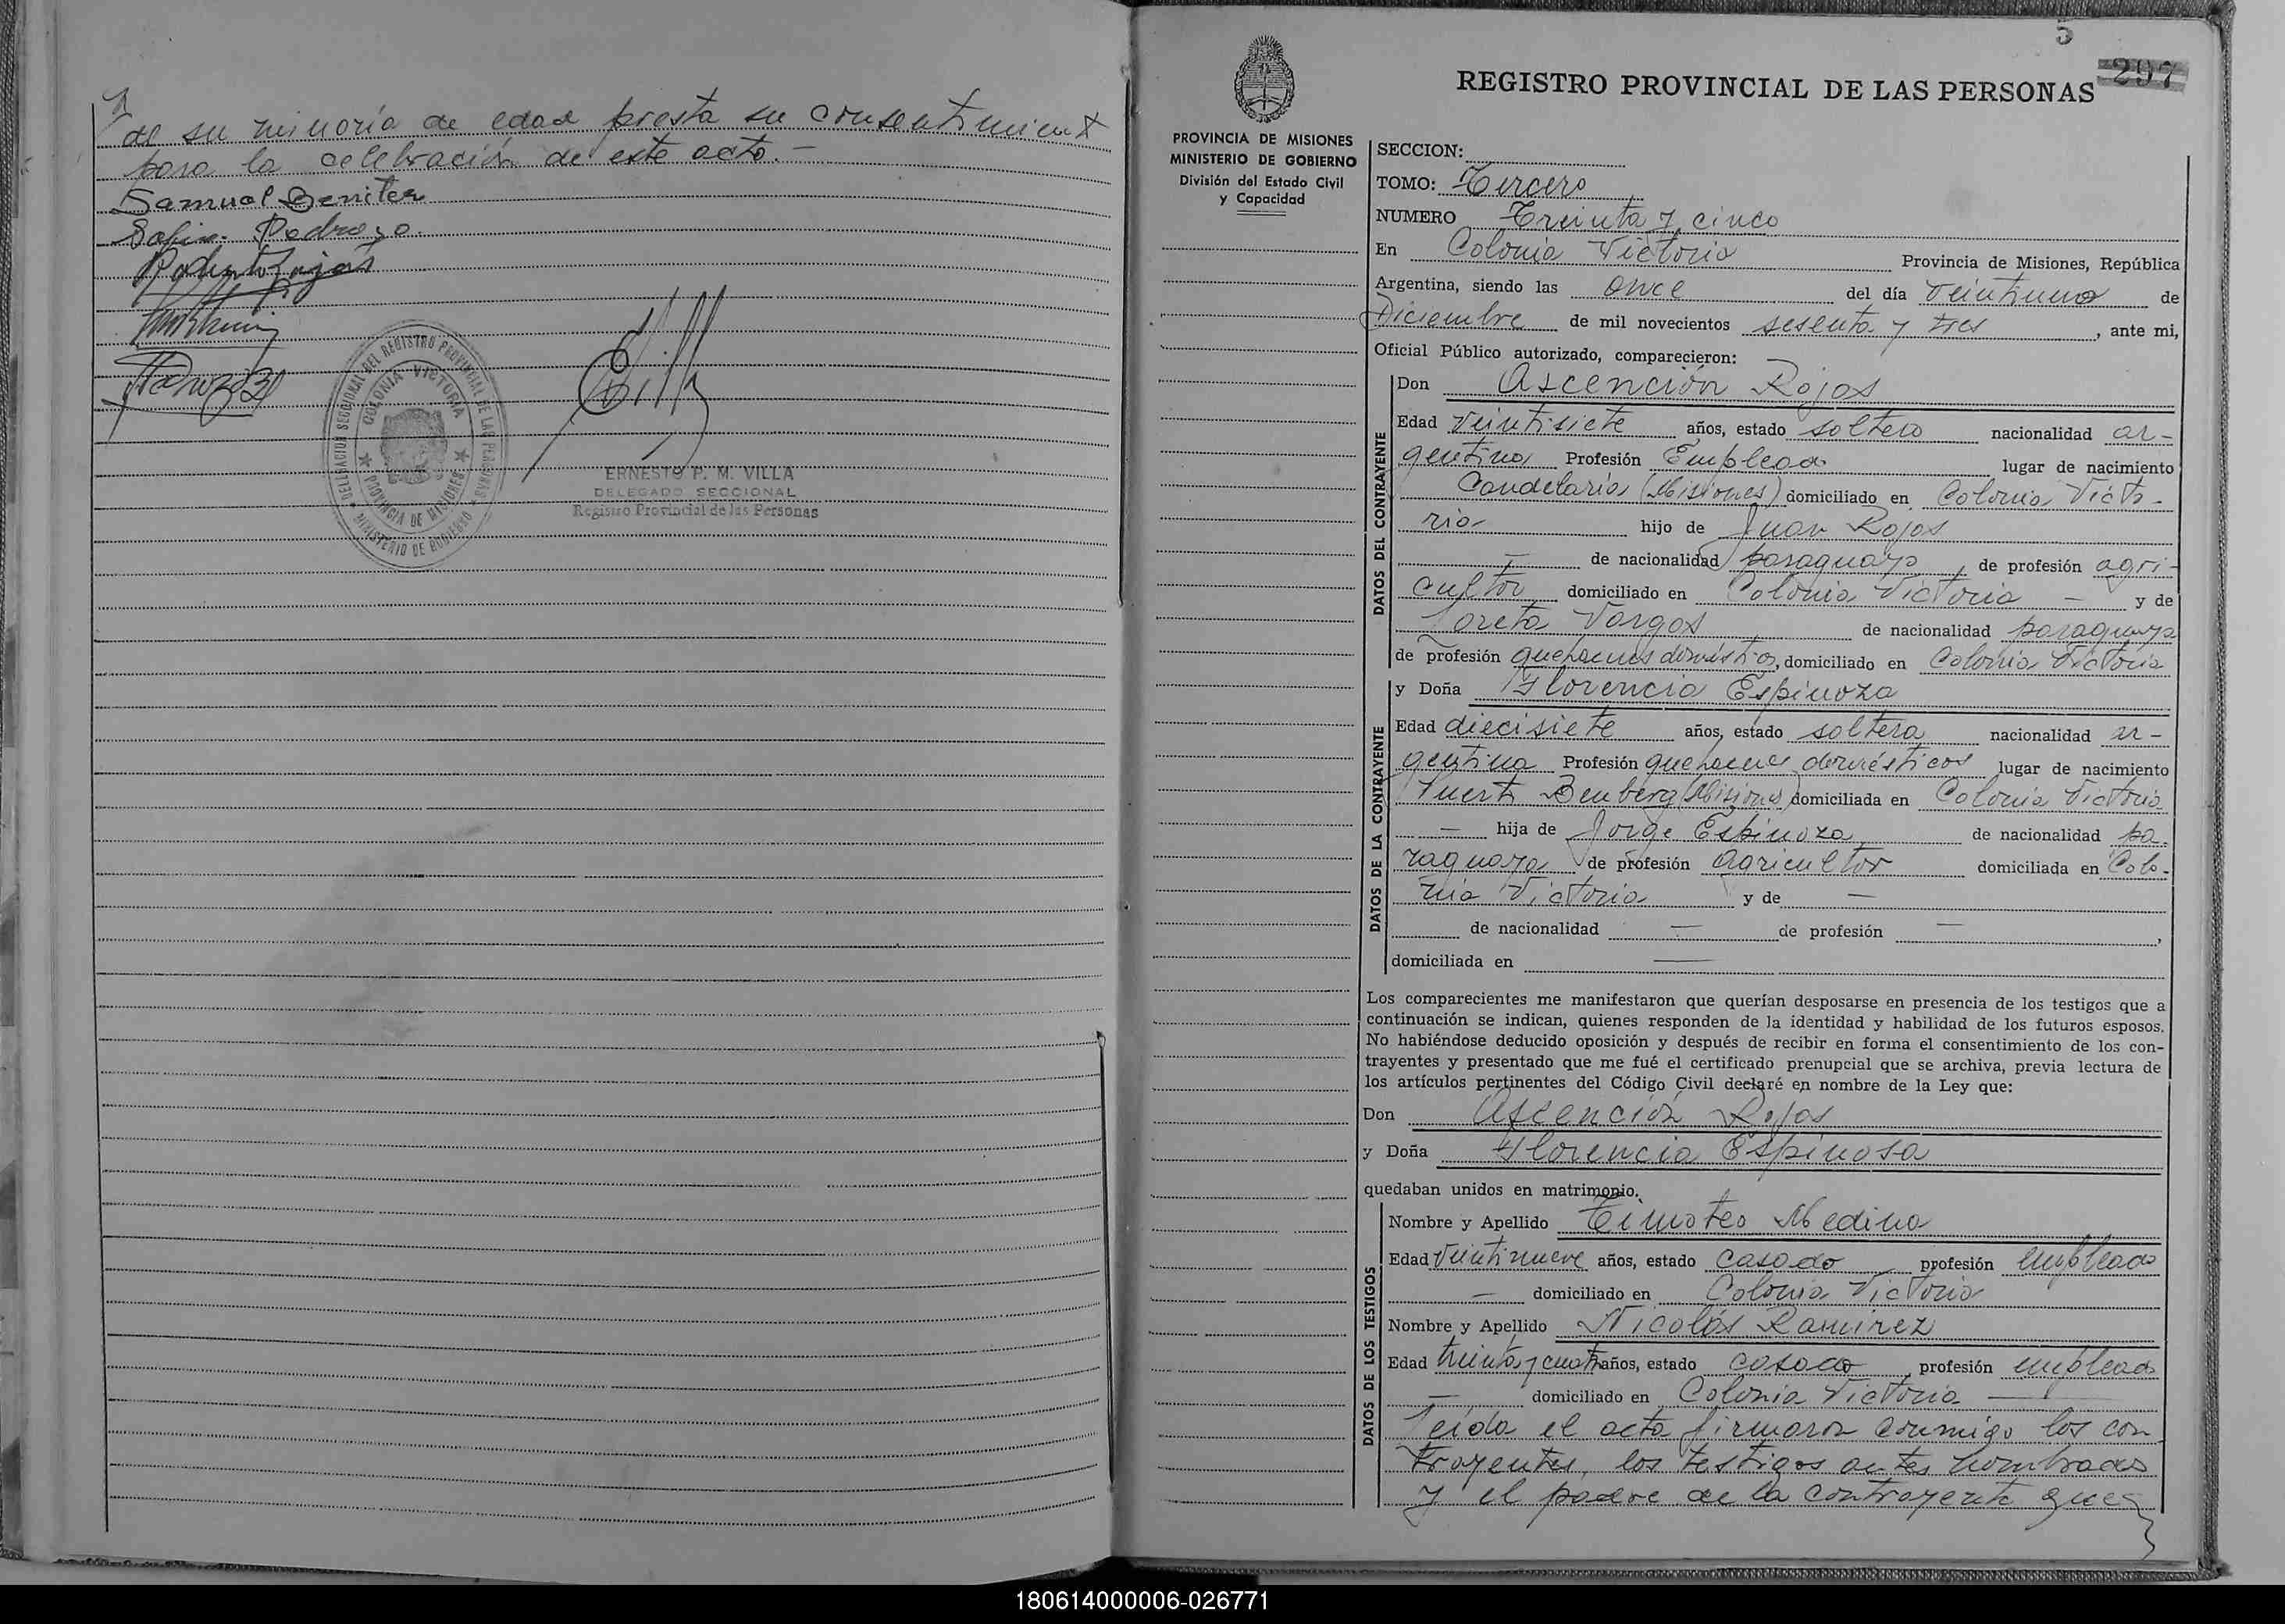 de su minoría de edad presta su consentimient
para la celebración de este acto. —
Samuel Benitez
Sofia Pedrozo
Roberto Rojas
DELEGACION SECCIONAL DEL REGISTRO PROVINCIAL DE LAS PERSONAS
COLONIA VICTORIA
PROVINCIA DE MISIONES
MINISTERIO DE GOBIERNO
ERNESTO P. M. VILLA
DELEGADO SECCIONAL
Registro Provincial de las Personas
5
297
REGISTRO PROVINCIAL DE LAS PERSONAS
PROVINCIA DE MISIONES
MINISTERIO DE GOBIERNO
División del Estado Civil
y Capacidad
SECCION:
TOMO: Tercero
NUMERO Treinta y cinco
En Colonia Victoria Provincia de Misiones, República
Argentina, siendo las once del día veintiuno de
Diciembre de mil novecientos sesenta y tres, ante mi,
Oficial Público autorizado, comparecieron:
DATOS DEL CONTRAYENTE
Don Ascención Rojas
Edad veintisiete años, estado soltero nacionalidad ar-
gentina Profesión Empleado lugar de nacimiento
Candelaria (Misiones) domiciliado en Colonia Victo-
ria hijo de Juan Rojas
— de nacionalidad paraguaya, de profesión agri-
cultor domiciliado en Colonia Victoria — y de
Loreta Vargas de nacionalidad paraguaya
de profesión quehaceres domésticos, domiciliado en Colonia Victoria
DATOS DE LA CONTRAYENTE
y Doña Florencia Espinoza
Edad diecisiete años, estado soltera nacionalidad ar-
gentina Profesión quehaceres domésticos lugar de nacimiento
Puerto Bemberg (Misiones) domiciliada en Colonia Victoria
— hija de Jorge Espinoza de nacionalidad pa-
raguaya de profesión agricultor domiciliada en Colo-
nia Victoria y de —
de nacionalidad — de profesión —,
domiciliada en —
Los comparecientes me manifestaron que querían desposarse en presencia de los testigos que a
continuación se indican, quienes responden de la identidad y habilidad de los futuros esposos.
No habiéndose deducido oposición y después de recibir en forma el consentimiento de los con-
trayentes y presentado que me fué el certificado prenupcial que se archiva, previa lectura de
los artículos pertinentes del Código Civil declaré en nombre de la Ley que:
Don Ascención Rojas
y Doña Florencia Espinosa
quedaban unidos en matrimonio.
DATOS DE LOS TESTIGOS
Nombre y Apellido Timoteo Medina
Edad veintinueve años, estado casado profesión empleado
— domiciliado en Colonia Victoria
Nombre y Apellido Nicolás Ramirez
Edad treinta y cuatro años, estado casado profesión empleado
— domiciliado en Colonia Victoria —
Leída el acta firmaron conmigo los con
trayentes, los testigos antes nombrados
y el padre de la contrayente que
180614000006-026771